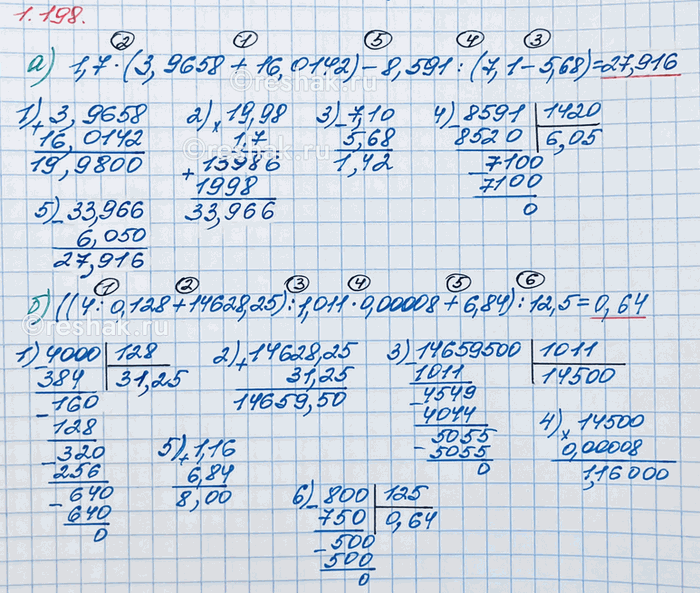 1.198.
② ① ⑤ ④ ③
а) 1,7 · (3,9658 + 16,0142) - 8,591 : (7,1 - 5,68) = 27,916
1) + 3,9658
16,0142
19,9800
2) × 19,98
1,7
+ 13986
1998
33,966
3) - 7,10
5,68
1,42
4) - 8591 | 1420
8520 | 6,05
- 7100
7100
0
5) - 33,966
6,050
27,916
① ② ③ ④ ⑤ ⑥
б) ((4 : 0,128 + 14628,25) : 1,011 · 0,00008 + 6,84) : 12,5 = 0,64
©reshak.ru
1) - 4000 | 128
384 | 31,25
- 160
128
- 320
256
- 640
640
0
2) + 14628,25
31,25
14659,50
3) - 14659500 | 1011
1011 | 14500
- 4549
4044
- 5055
5055
0
4) × 14500
0,00008
1,16000
5) + 1,16
6,84
8,00
6) - 800 | 125
750 | 0,64
- 500
500
0